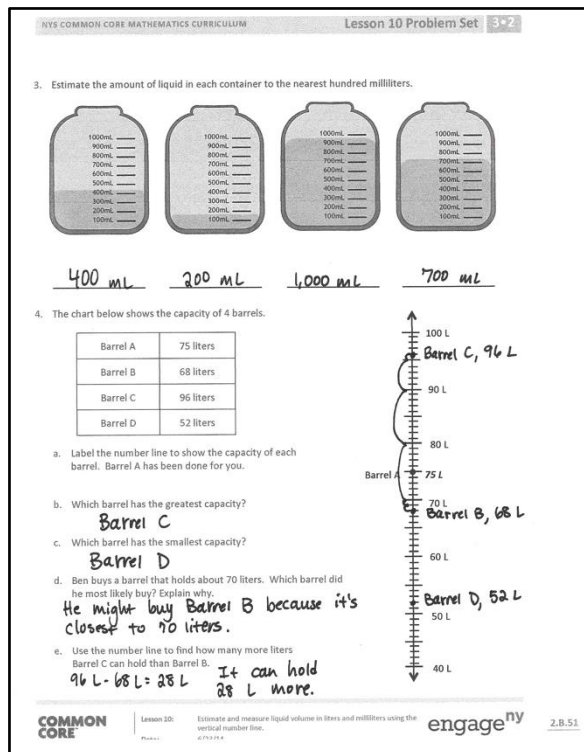 NYS COMMON CORE MATHEMATICS CURRICULUM
Lesson 10 Problem Set
3•2
3. Estimate the amount of liquid in each container to the nearest hundred milliliters.
1000mL
900mL
800mL
700mL
600mL
500mL
400mL
300mL
200mL
100mL
1000mL
900mL
800mL
700mL
600mL
500mL
400mL
300mL
200mL
100mL
1000mL
900mL
800mL
700mL
600mL
500mL
400mL
300mL
200mL
100mL
1000mL
900mL
800mL
700mL
600mL
500mL
400mL
300mL
200mL
100mL
400 mL
200 mL
1,000 mL
700 mL
4. The chart below shows the capacity of 4 barrels.
Barrel A 75 liters
Barrel B 68 liters
Barrel C 96 liters
Barrel D 52 liters
a. Label the number line to show the capacity of each
barrel. Barrel A has been done for you.
b. Which barrel has the greatest capacity?
Barrel C
c. Which barrel has the smallest capacity?
Barrel D
d. Ben buys a barrel that holds about 70 liters. Which barrel did
he most likely buy? Explain why.
He might buy Barrel B because it's
closest to 70 liters.
e. Use the number line to find how many more liters
Barrel C can hold than Barrel B.
96 L - 68 L = 28 L
It can hold
28 L more.
100 L
Barrel C, 96 L
90 L
80 L
Barrel A 75 L
70 L
Barrel B, 68 L
60 L
Barrel D, 52 L
50 L
40 L
COMMON
CORE
Lesson 10:
Estimate and measure liquid volume in liters and milliliters using the
vertical number line.
engage ny
2.B.51